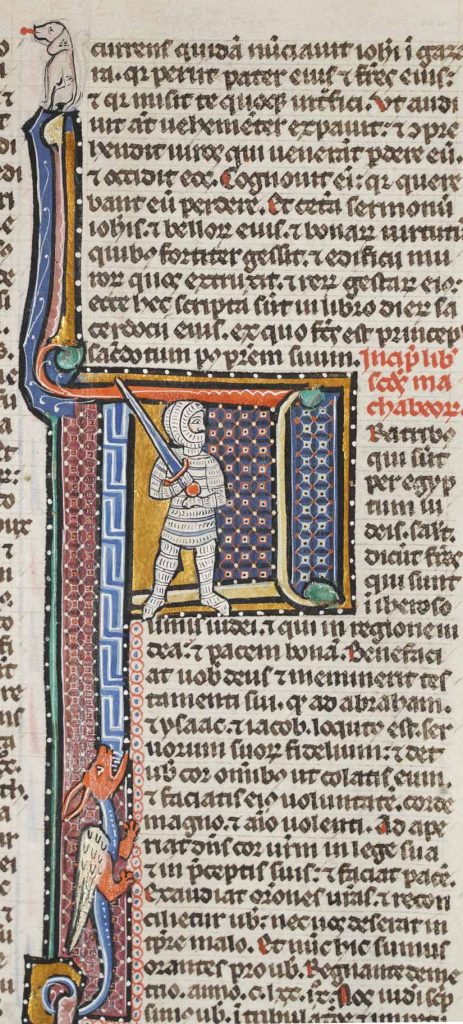 currens quidā nūciauit iohi ī gaza
ra. qr periit pater eius ⁊ fr̄es eius:
⁊ qr misit te quoqꝫ intfici. Ut audi
uit āt uehementer expauit: ⁊ ↄpre
hendit uiros qui uenerāt pdere eū.
⁊ occidit eos. Cognouit eī: qr quere
bant eū perdere. Et cetā sermonū
iohis. ⁊ bellorꝝ eius. ⁊ bonarꝝ uirtutū
quibꝰ fortiter gessit. ⁊ edificii mu
rorꝝ quos extruxit. ⁊ rerꝝ gestarꝝ eiꝰ:
ecce hec scripta sūt in libro dierꝝ sa
cerdocii eius. ex quo fc̄s est princeps
sac̄dotum pꝰ prēm suum. Incip̄ lib̄
scd̄s ma
chabeorꝝ.
Ratribꝰ
qui sūt
per egyp
tum iu
deis. salt̄.
dicūt fr̄es
qui sunt
ī iheroso
limis iudei. ⁊ qui in regione iu
dea: ⁊ pacem bonā. Benefici
at uob̄ deus ⁊ meminerit tes
tamenti sui. qd̄ ad abraham.
⁊ ysaac. ⁊ iacob. loqutꝰ est. ser
uorum suorꝝ fidelium: ⁊ det
ub̄ cor omībꝰ ut colatis eum.
⁊ faciatis eiꝰ uoluntatē. corde
magno. ⁊ aīo uolenti. Ad ape
riat dn̄s cor ur̄m in lege sua
⁊ in p̄ceptis suis: ⁊ faciat pacē.
exaudiat or̄ones ur̄as. ⁊ recon
cilietur ub̄: nec uos deserat in
tp̄re malo. Et nūc hic sumus
orantes pro ub̄. Regnante deme
trio. anno. c. lxc. ix. Nos iudi sc̄p
simꝰ ub̄. ī tribulatōe ⁊ impetu